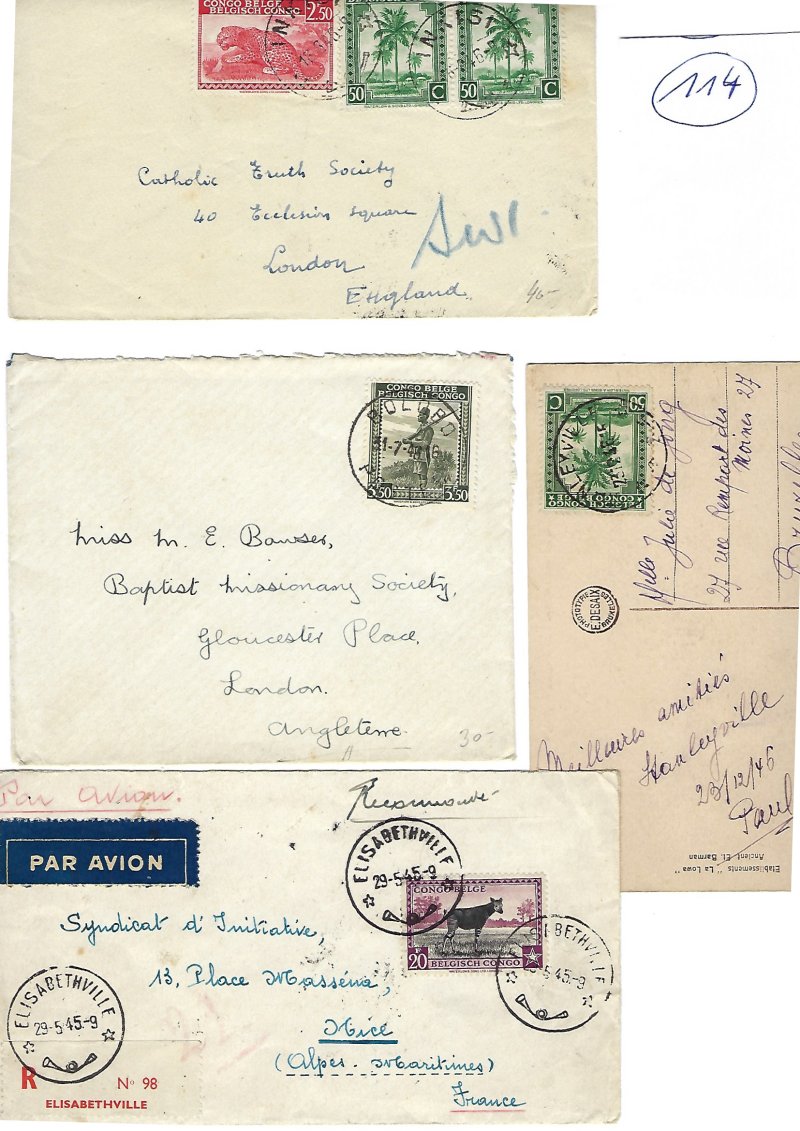 CONGO BELGE
BELGISCH CONGO
2.50
50 C
50 C
114
Catholic Truth Society
40 Ecclesion square
London
England
40-
CONGO BELGE
BELGISCH CONGO
BOLOBO
3.50 3.50
Miss M. E. Bowser,
Baptist Missionary Society,
Gloucester Place,
London.
Angleterre
30-
BELGISCH CONGO
CONGO BELGE
Mlle Julie de Jong
27 rue Rempart des
Moines 27
PHOTOTYPIE
E. DESAIX
BRUXELLES
Meilleures amitiés
Stanleyville
23/12/46
Paul
Etablissements "La Lowa"
Ancient Et. Barman
Par avion.
Recommandé
PAR AVION
ELISABETHVILLE
29-5-45.-9
CONGO BELGE
20
BELGISCH CONGO
Syndicat d'Initiative,
13, Place Masséna,
Nice
(Alpes-Maritimes)
France
ELISABETHVILLE
29-5-45.-9
R No 98
ELISABETHVILLE